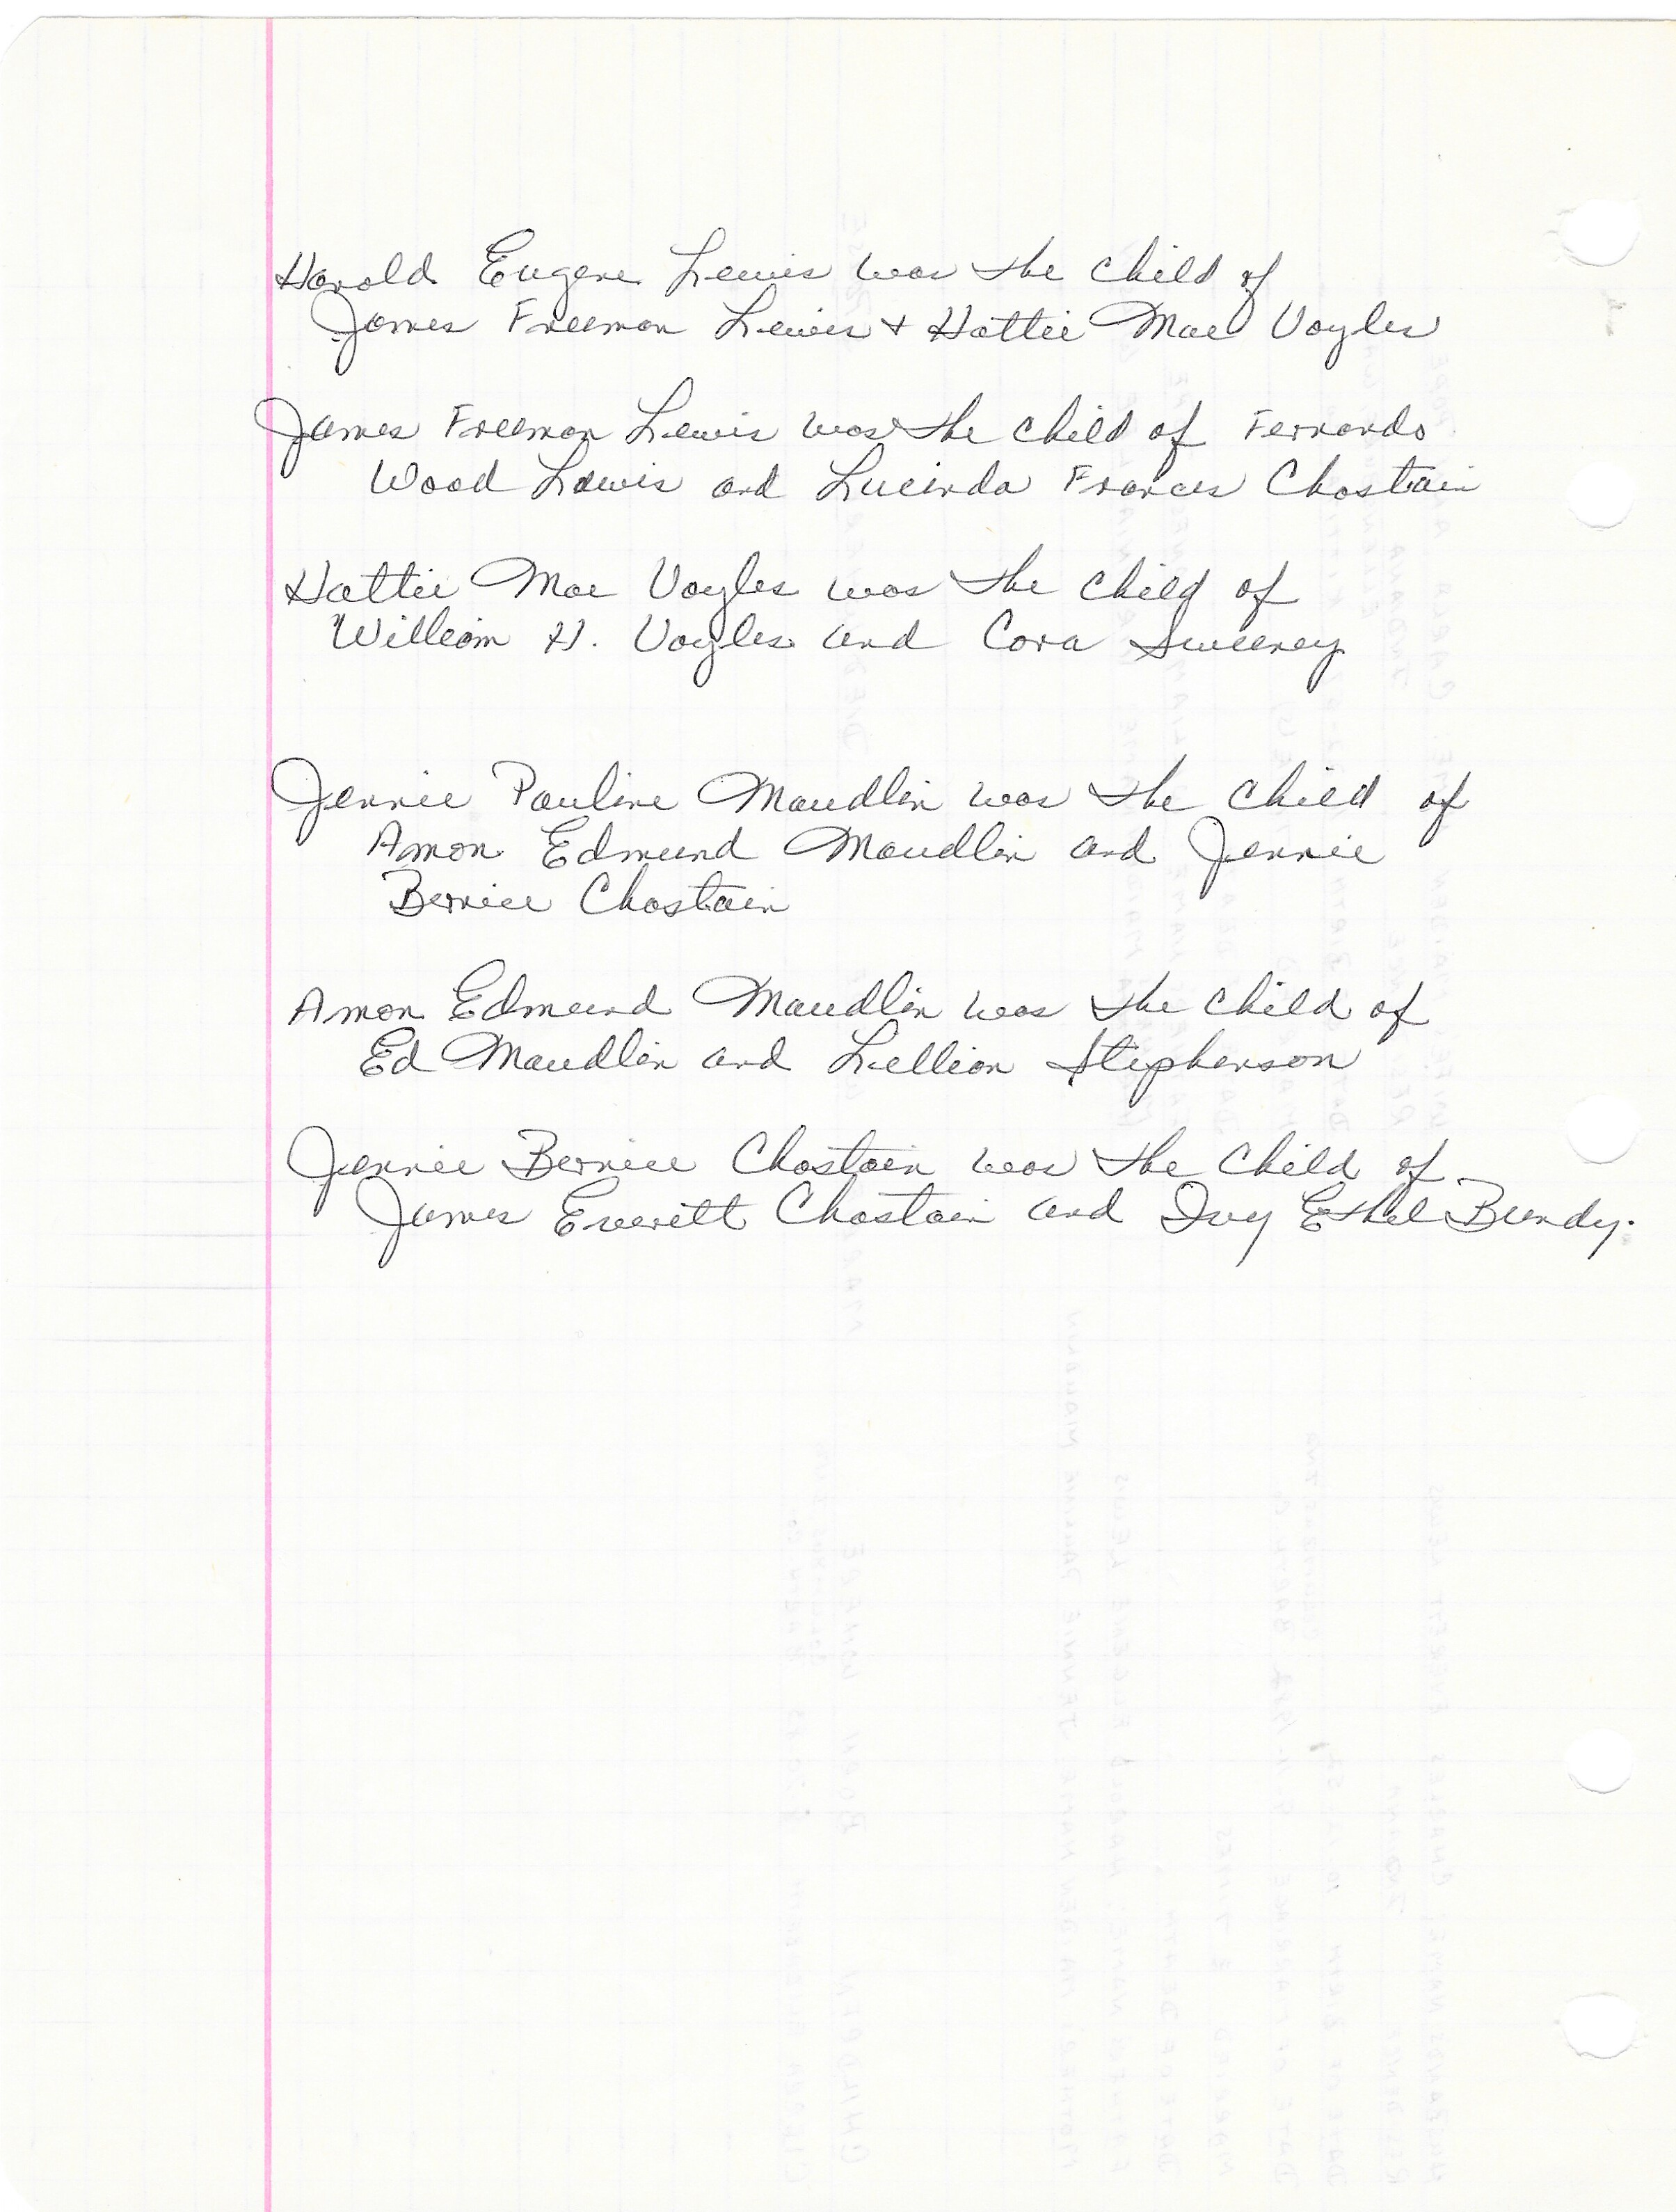 Harold Eugene Lewis was the child of
James Freeman Lewis + Hattie Mae Voyles
James Freeman Lewis was the child of Fernando
Wood Lewis and Lucinda Frances Chastain
Hattie Mae Voyles was the child of
William H. Voyles and Cora Sweeney
Jennie Pauline Maudlin was the child of
Amon Edmund Maudlin and Jennie
Bernice Chastain
Amon Edmund Maudlin was the child of
Ed Maudlin and Lillian Stephenson
Jennie Bernice Chastain was the child of
James Everett Chastain and Ivy Ethel Bundy.